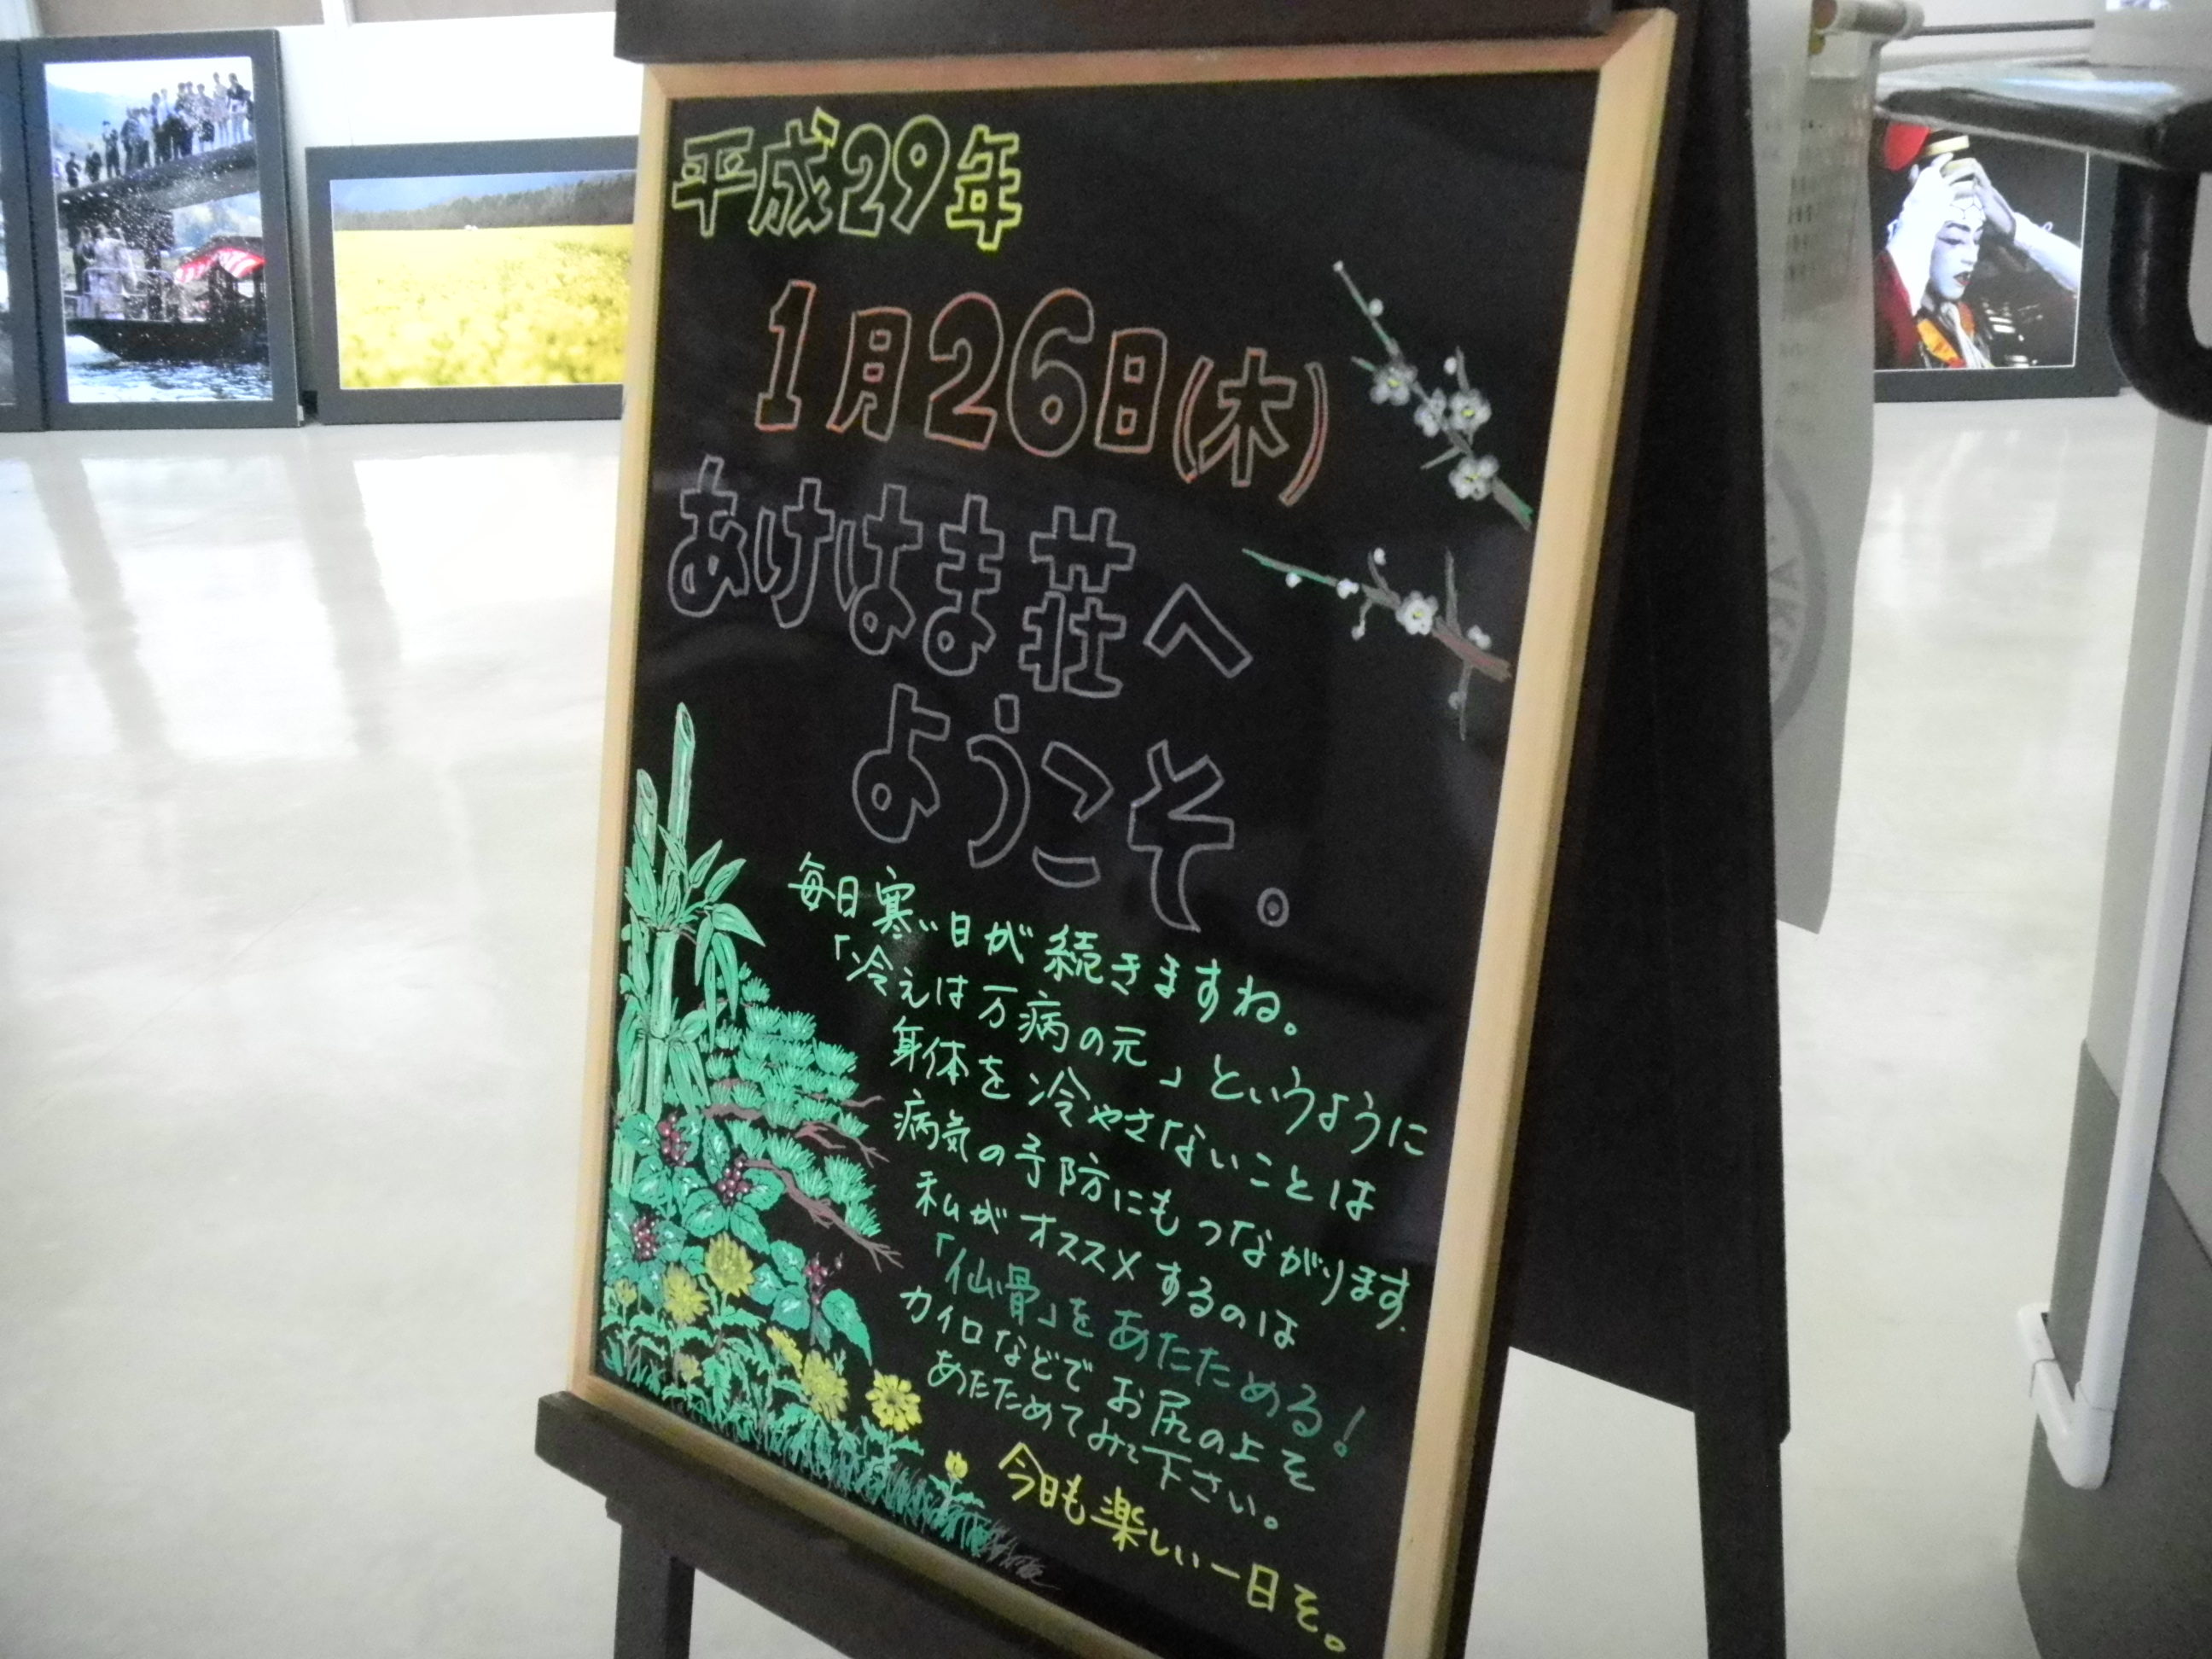 平成29年
1月26日(木)
あけはま荘へ
ようこそ。
毎日寒い日が続きますね。
「冷えは万病の元」というように
身体を冷やさないことは
病気の予防にもつながります.
私がオススメするのは
「仙骨」をあたためる!
カイロなどでお尻の上を
あたためてみて下さい。
今日も楽しい一日を。